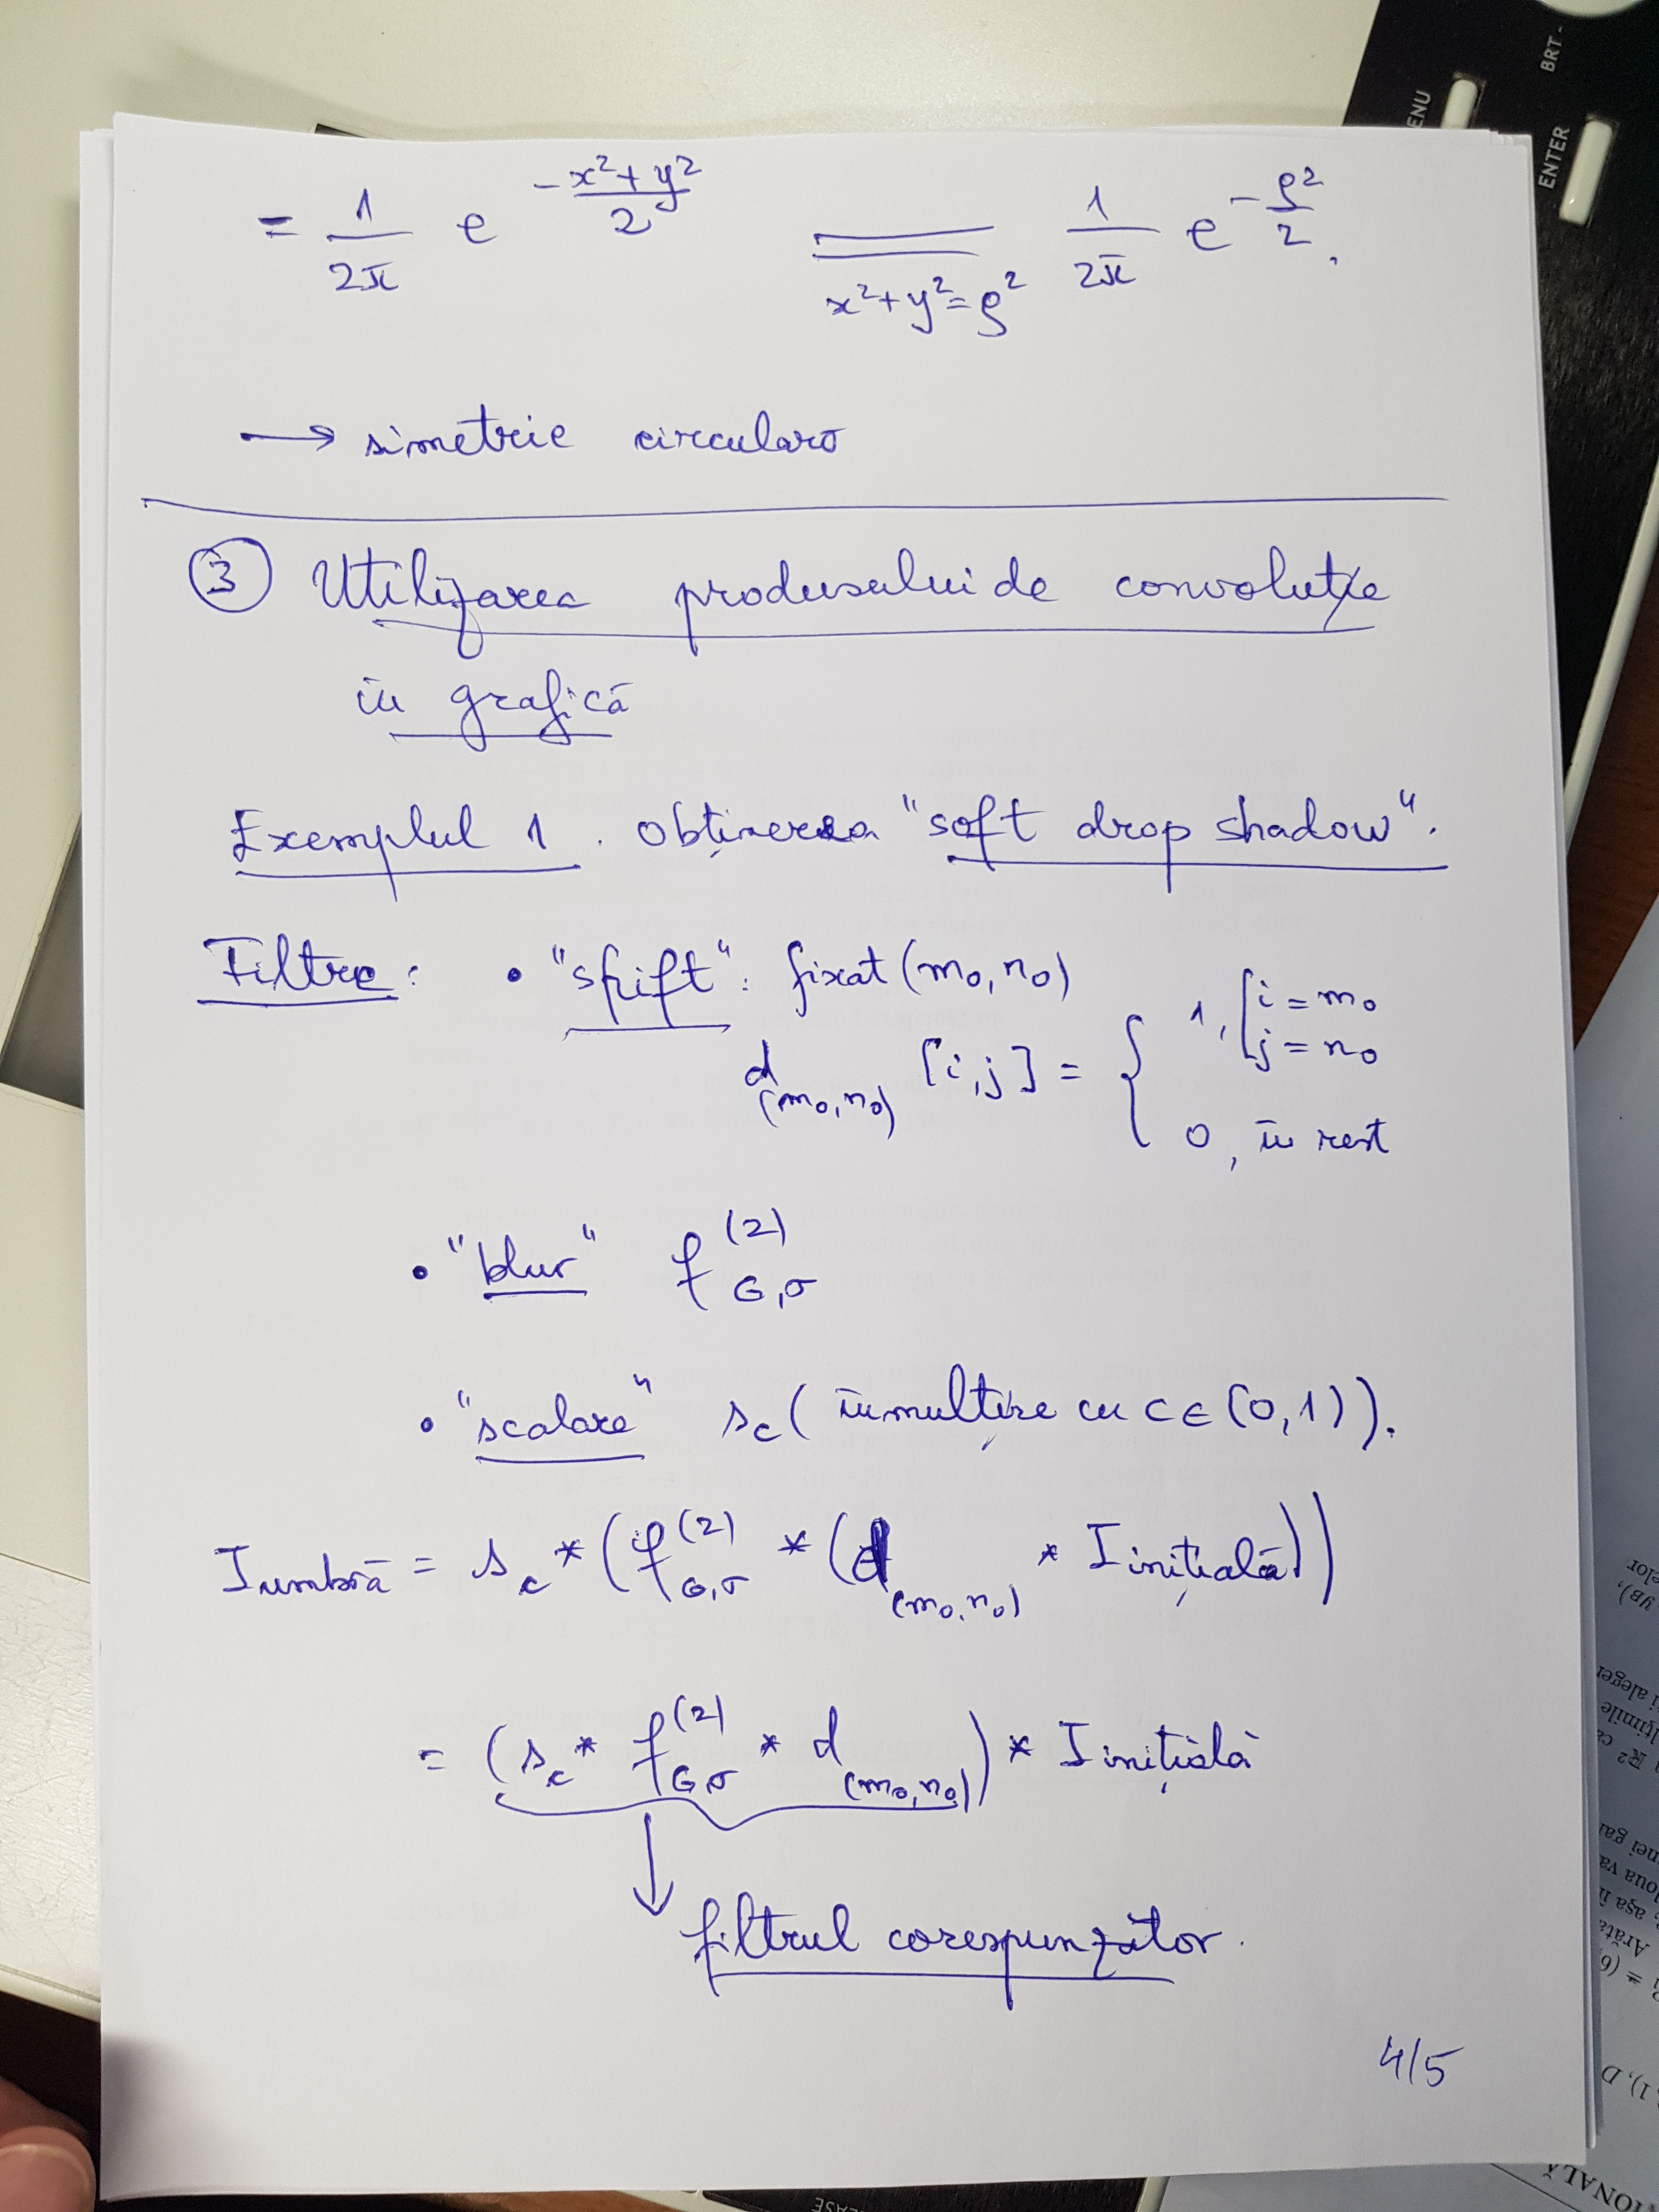 = 1/2π e^(-(x²+y²)/2) = (x²+y²=ρ²) 1/2π e^(-ρ²/2).
→ simetrie circulară
③ Utilizarea produsului de convoluție
în grafică
Exemplul 1. obținerea "soft drop shadow".
Filtre: • "shift": fixat (m₀, n₀)
d_(m₀,n₀) [i,j] = { 1, [i = m₀ j = n₀
0, în rest
• "blur" f^(2)_G,σ
• "scalare" s_c (înmulțire cu c ∈ (0,1)).
I umbră = s_c * (f^(2)_G,σ * (d_(m₀,n₀) * I inițială))
= (s_c * f^(2)_G,σ * d_(m₀,n₀)) * I inițială
↓
filtrul corespunzător.
4/5
ENU
BRT -
ENTER